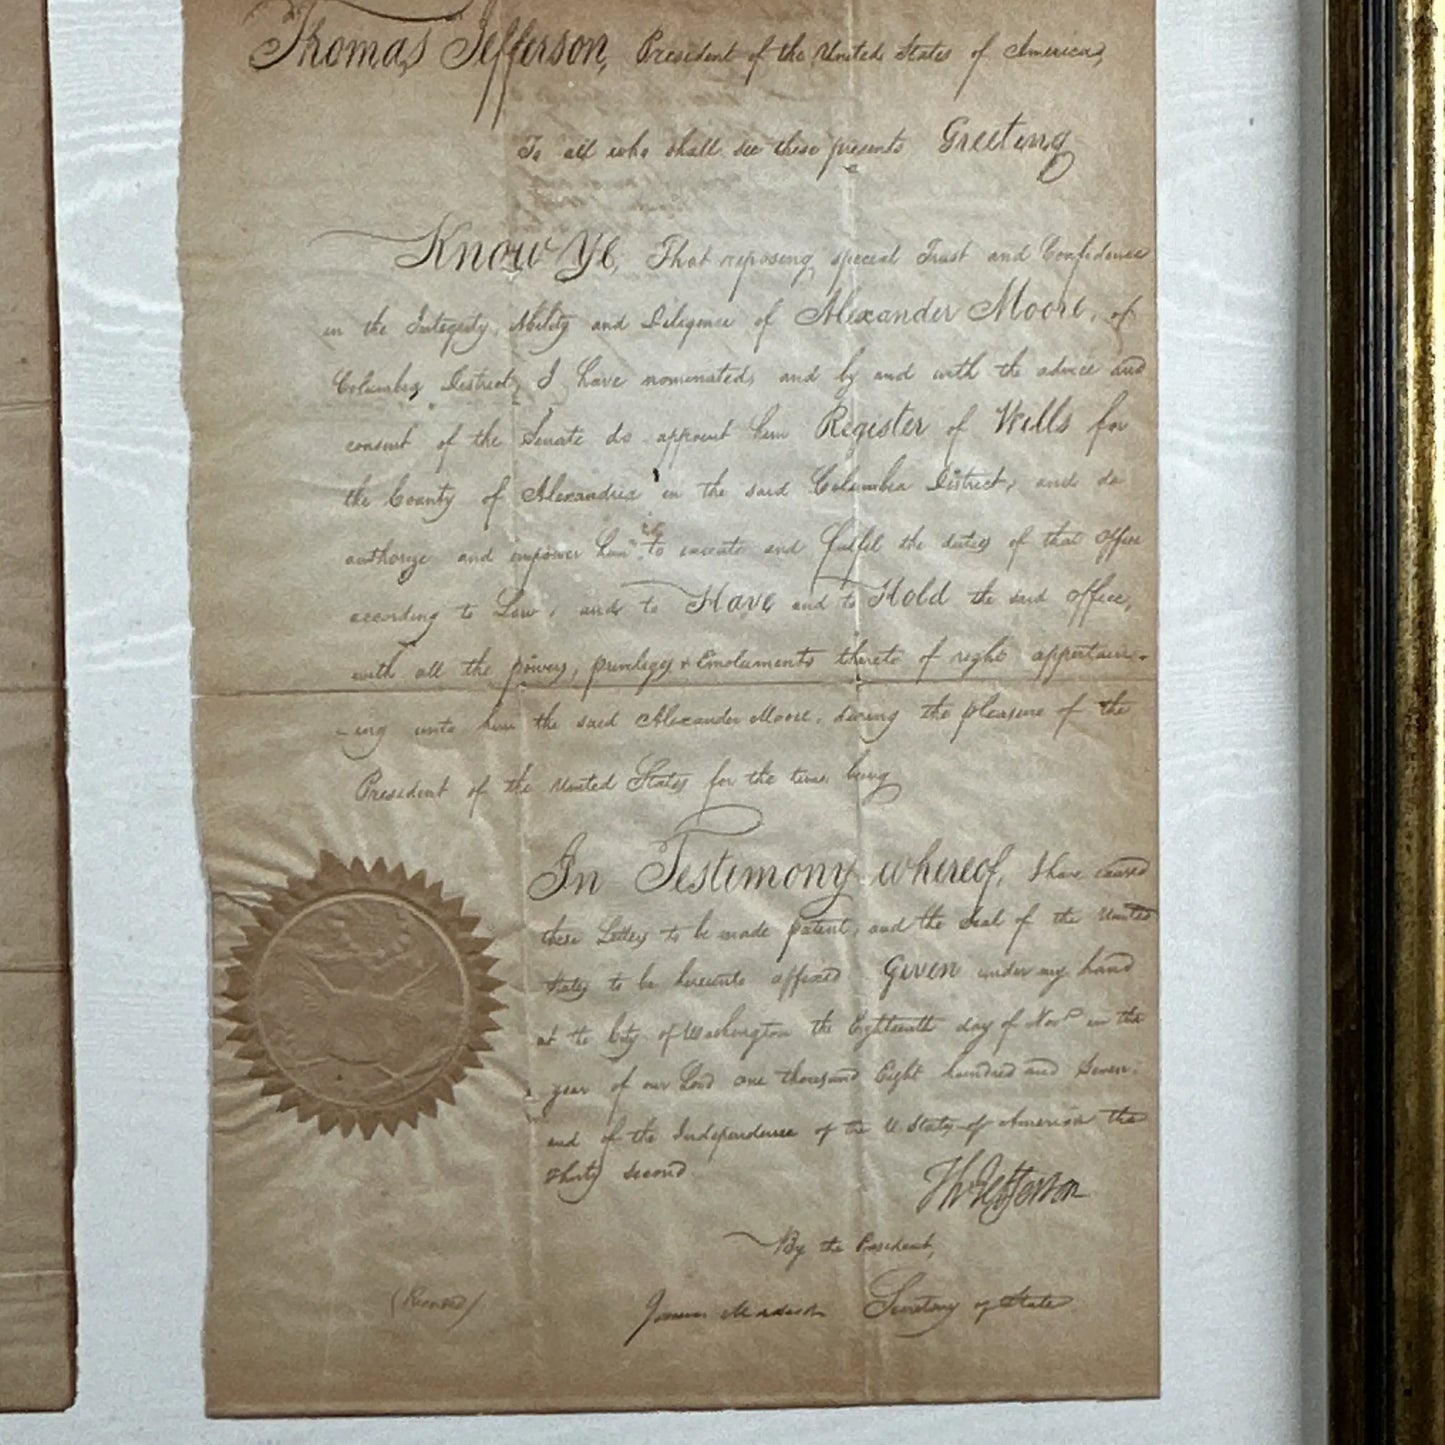 Thomas Jefferson, President of the United States of America,
To all who shall see these presents Greeting
Know Ye, That reposing special Trust and Confidence
in the Integrity, Ability and Diligence of Alexander Moore, of
Columbia District, I have nominated, and by and with the advice and
consent of the Senate do appoint him Register of Wills for
the County of Alexandria in the said Columbia District, and do
authorize and empower him to execute and fulfil the duties of that office
according to Law, and to Have and to Hold the said office,
with all the powers, privileges & Emoluments thereto of right appertain-
-ing unto him the said Alexander Moore, during the pleasure of the
President of the United States for the time being
In Testimony whereof, I have caused
these Letters to be made patent, and the Seal of the United
States to be hereunto affixed Given under my hand
at the City of Washington the Eighteenth day of Nov. in the
year of our Lord one thousand Eight hundred and Seven.
and of the Independence of the U. States of America the
thirty second
Th: Jefferson
By the President,
James Madison Secretary of State